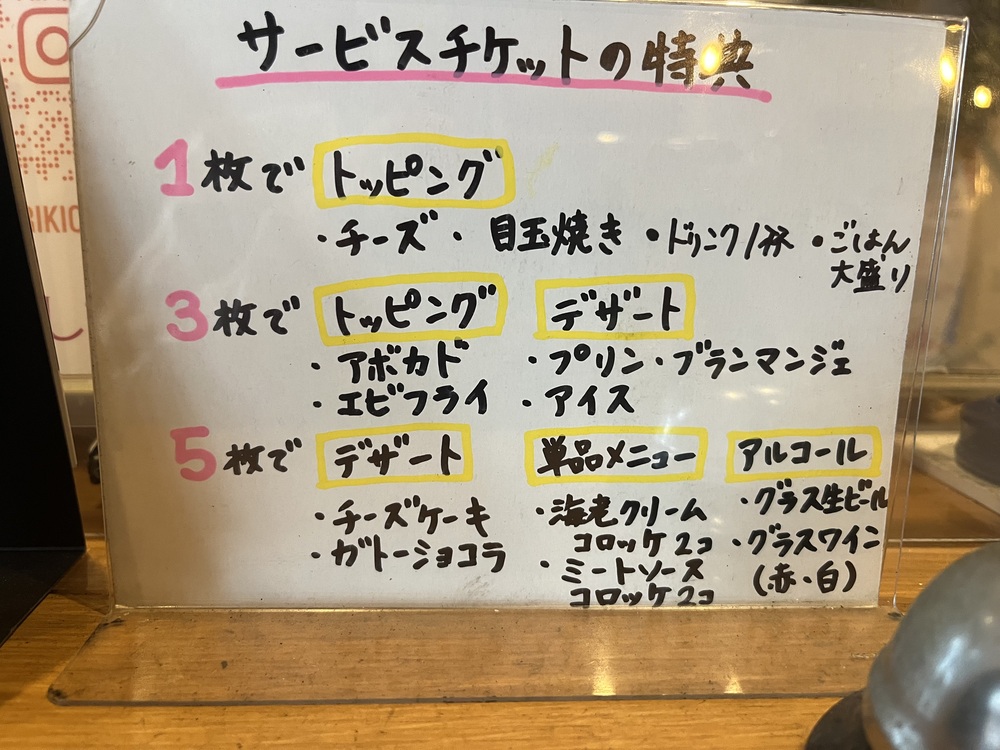 サービスチケットの特典
1枚で トッピング
・チーズ・目玉焼き・ドリンク1杯・ごはん
大盛り
3枚で トッピング デザート
・アボカド ・プリン・ブランマンジェ
・エビフライ ・アイス
5枚で デザート 単品メニュー アルコール
・チーズケーキ ・海老クリーム ・グラス生ビール
・ガトーショコラ コロッケ2コ ・グラスワイン
・ミートソース (赤・白)
コロッケ2コ